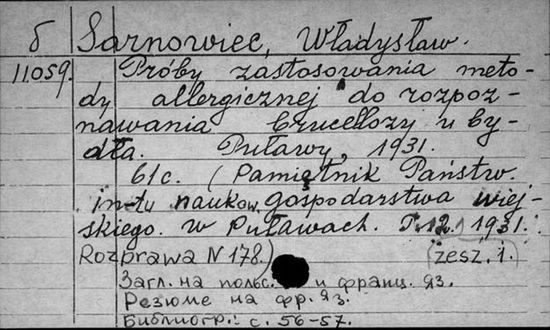 б Sarnowiec, Władysław.
11059. Próby zastosowania meto-
dy allergicznej do rozpoz-
nawania brucellozy u by-
dła. Puławy, 1931.
61c. (Pamiętnik Państw.
in-tu naukow. gospodarstwa wiej-
skiego. w Puławach. T. 12. 1931.
Rozprawa N 178.) zesz. 1.
Загл. на польс. и франц. яз.
Резюме на фр. яз.
Библиогр.: с. 56-57.